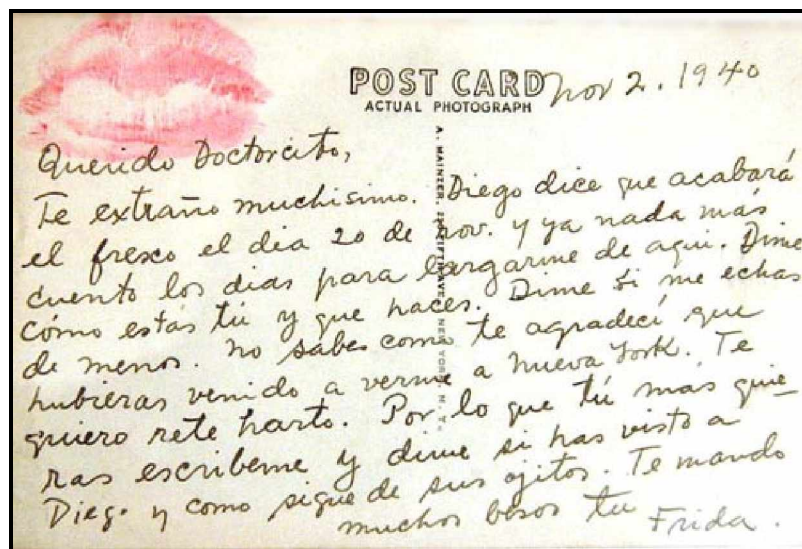 POST CARD
ACTUAL PHOTOGRAPH
Nov 2. 1940
Querido Doctorcito,
Te extraño muchisimo. Diego dice que acabará
el fresco el dia 20 de nov. y ya nada más
cuento los dias para largarme de aqui. Dime
cómo estás tú y que haces. Dime si me echas
de menos. no sabes como te agradecí que
hubieras venido a verme a Nueva York. Te
quiero rete harto. Por lo que tú más quie-
ras escribeme y dime si has visto a
Diego y como sigue de sus ojitos. Te mando
muchos besos tu Frida.
A. MAINZER, NEW YORK, N. Y.